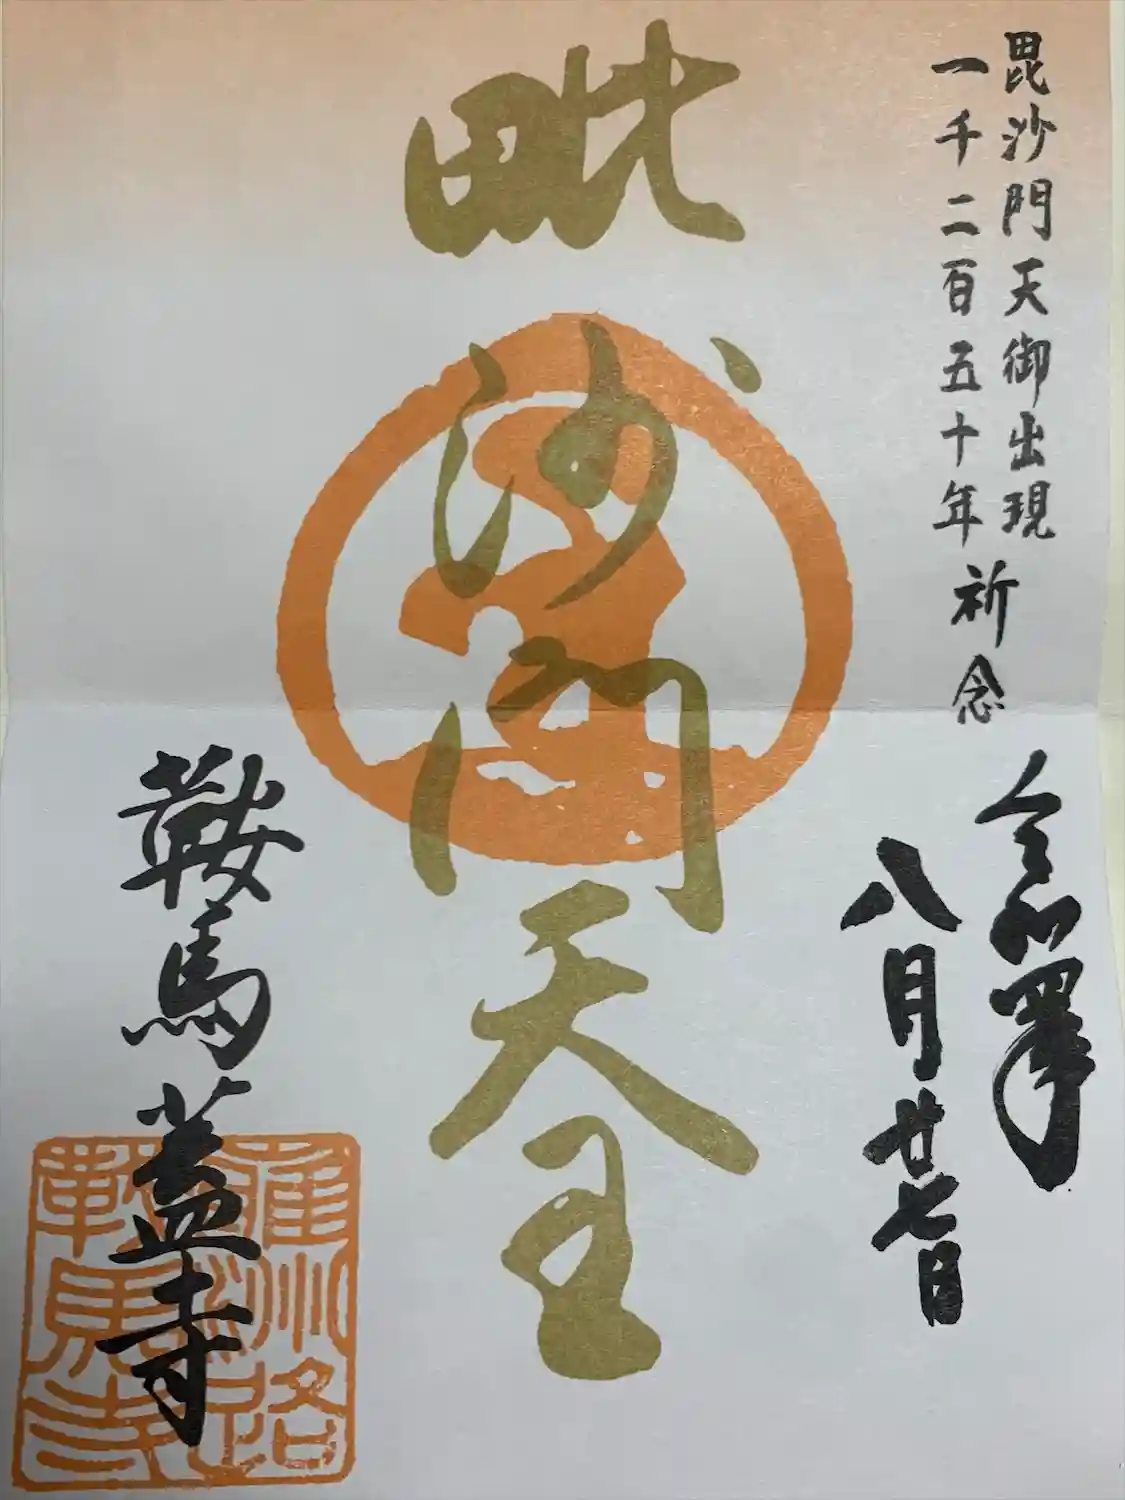 毘沙門天御出現
一千二百五十年祈念
令和四年
八月廿七日
毗沙門天王
鞍馬蓋寺
雍州路
鞍馬寺